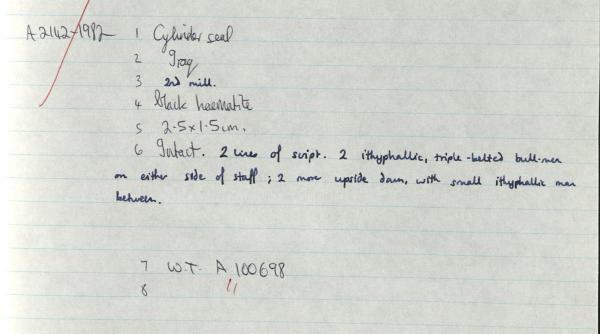 A2142-1982 1 Cylinder seal
2 Iraq
3 2nd mill.
4 black haematite
5 2.5x1.5cm.
6 Intact. 2 lines of script. 2 ithyphallic, triple-belted bull-men
on either side of staff; 2 more upside down, with small ithyphallic man
between.
7 W.T. A 100698
8